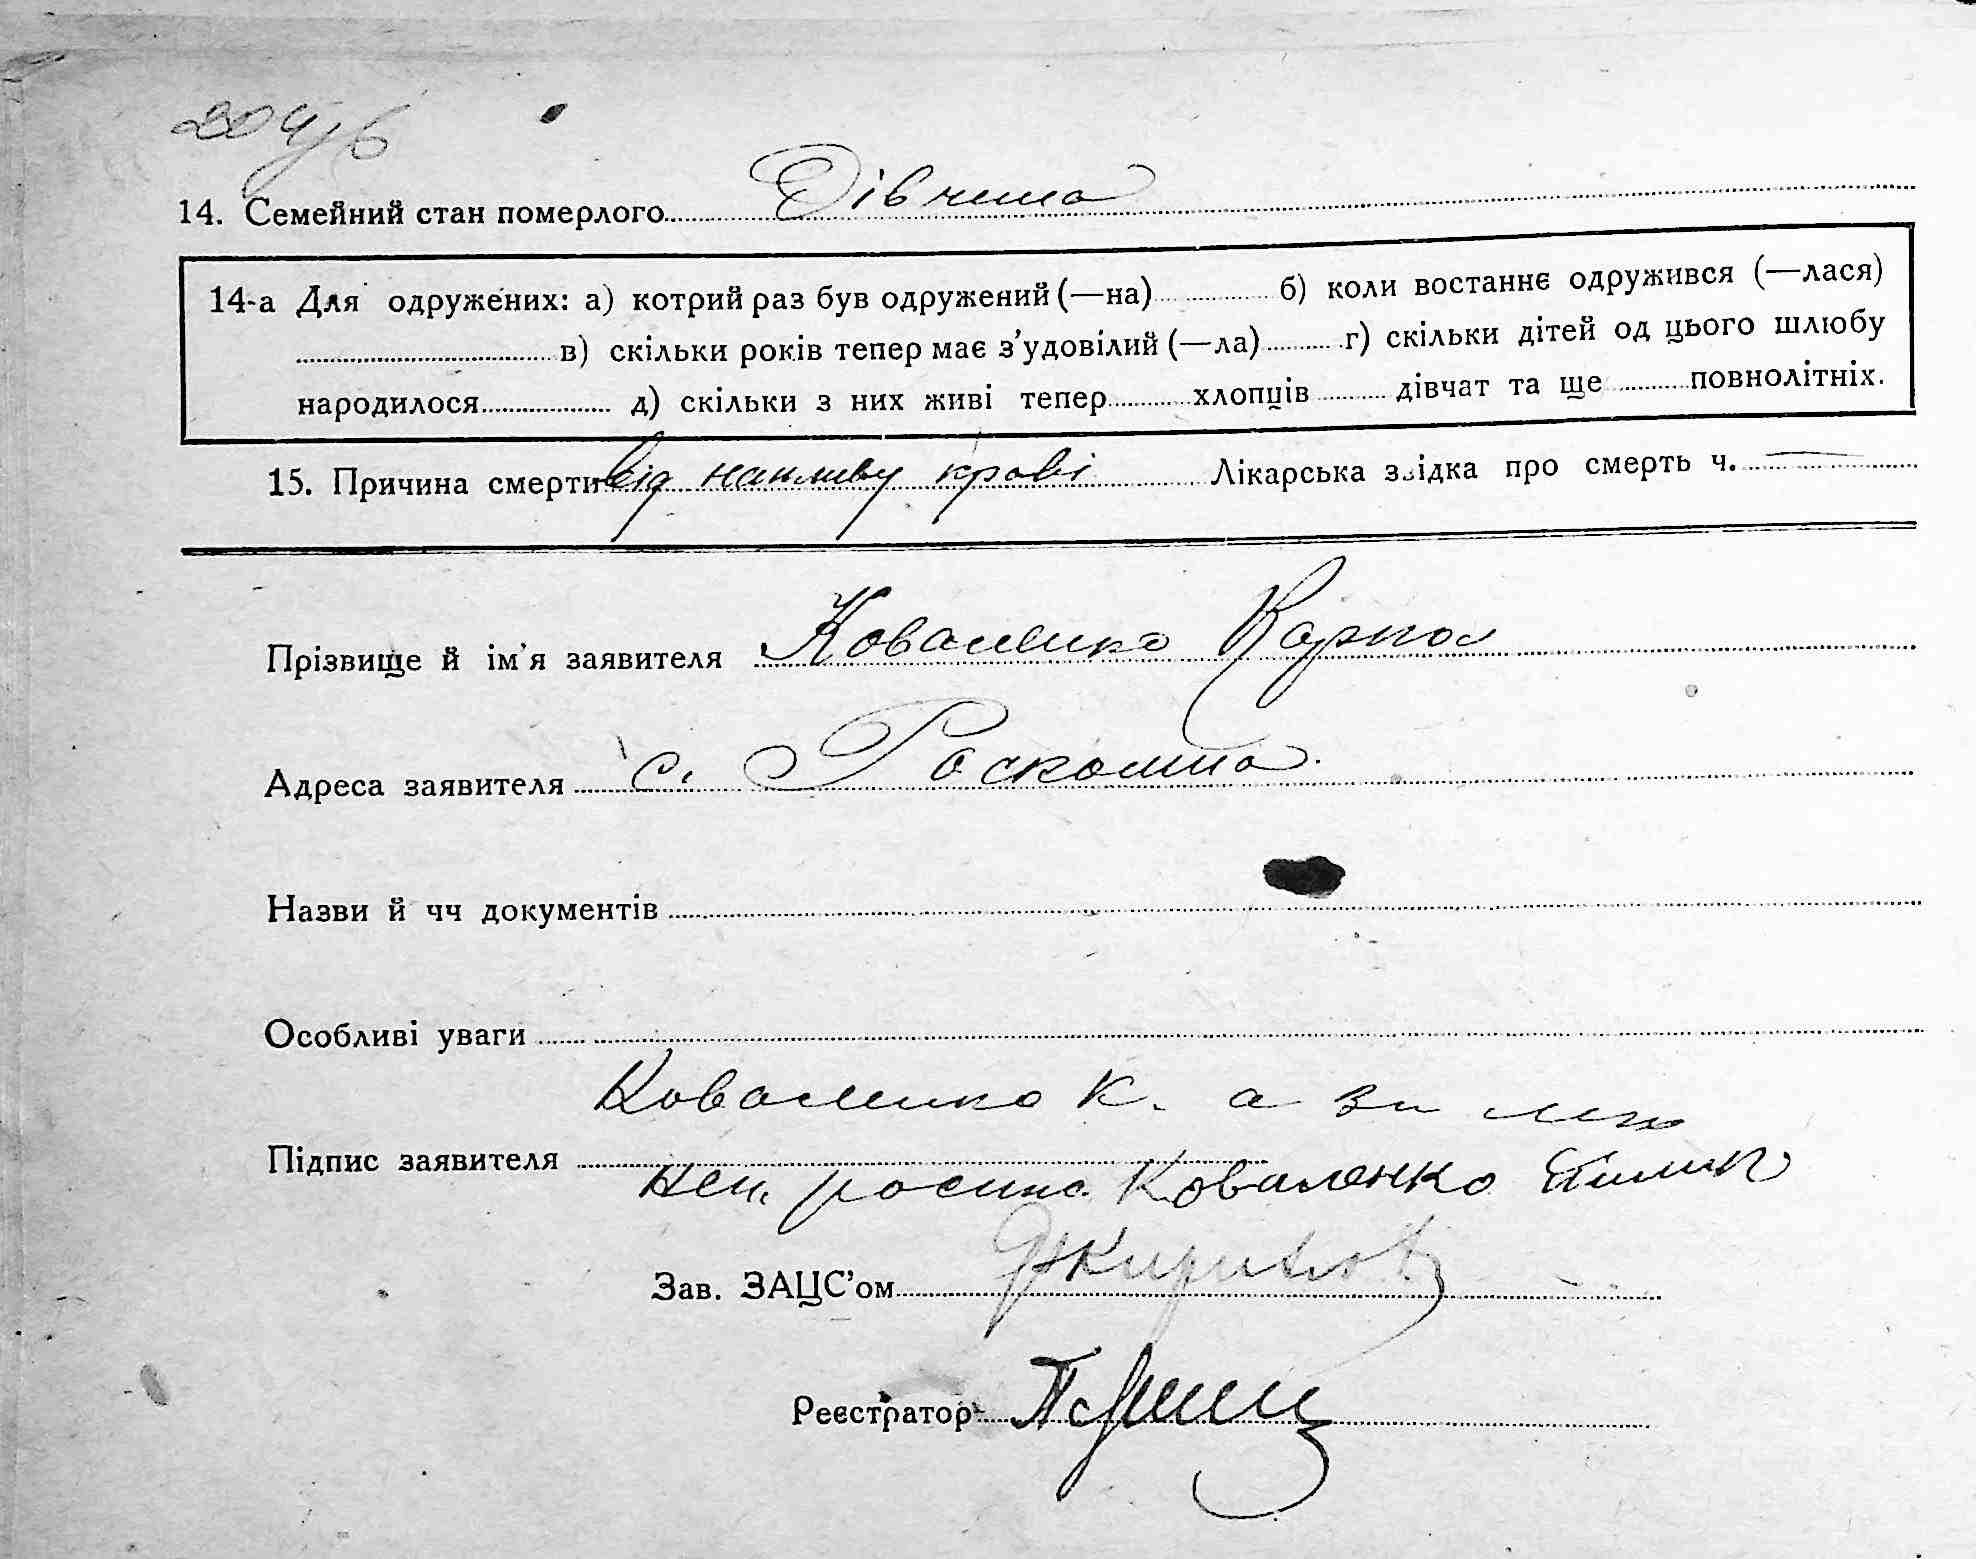 204/6
14. Семейний стан померлого Дівчина
14-а Для одружених: а) котрий раз був одружений (—на) б) коли востаннє одружився (—лася)
в) скільки років тепер має з’удовілий (—ла) г) скільки дітей од цього шлюбу
народилося д) скільки з них живі тепер хлопців дівчат та ще повнолітніх.
15. Причина смерти Від напливу крові Лікарська звідка про смерть ч. —
Прізвище й ім’я заявителя Коваленко Карпо
Адреса заявителя с. Роскошна
Назви й чч документів
Особливі уваги
Коваленко К. а за
Підпис заявителя
Коваленко
Зав. ЗАЦС’ом
Реєстратор